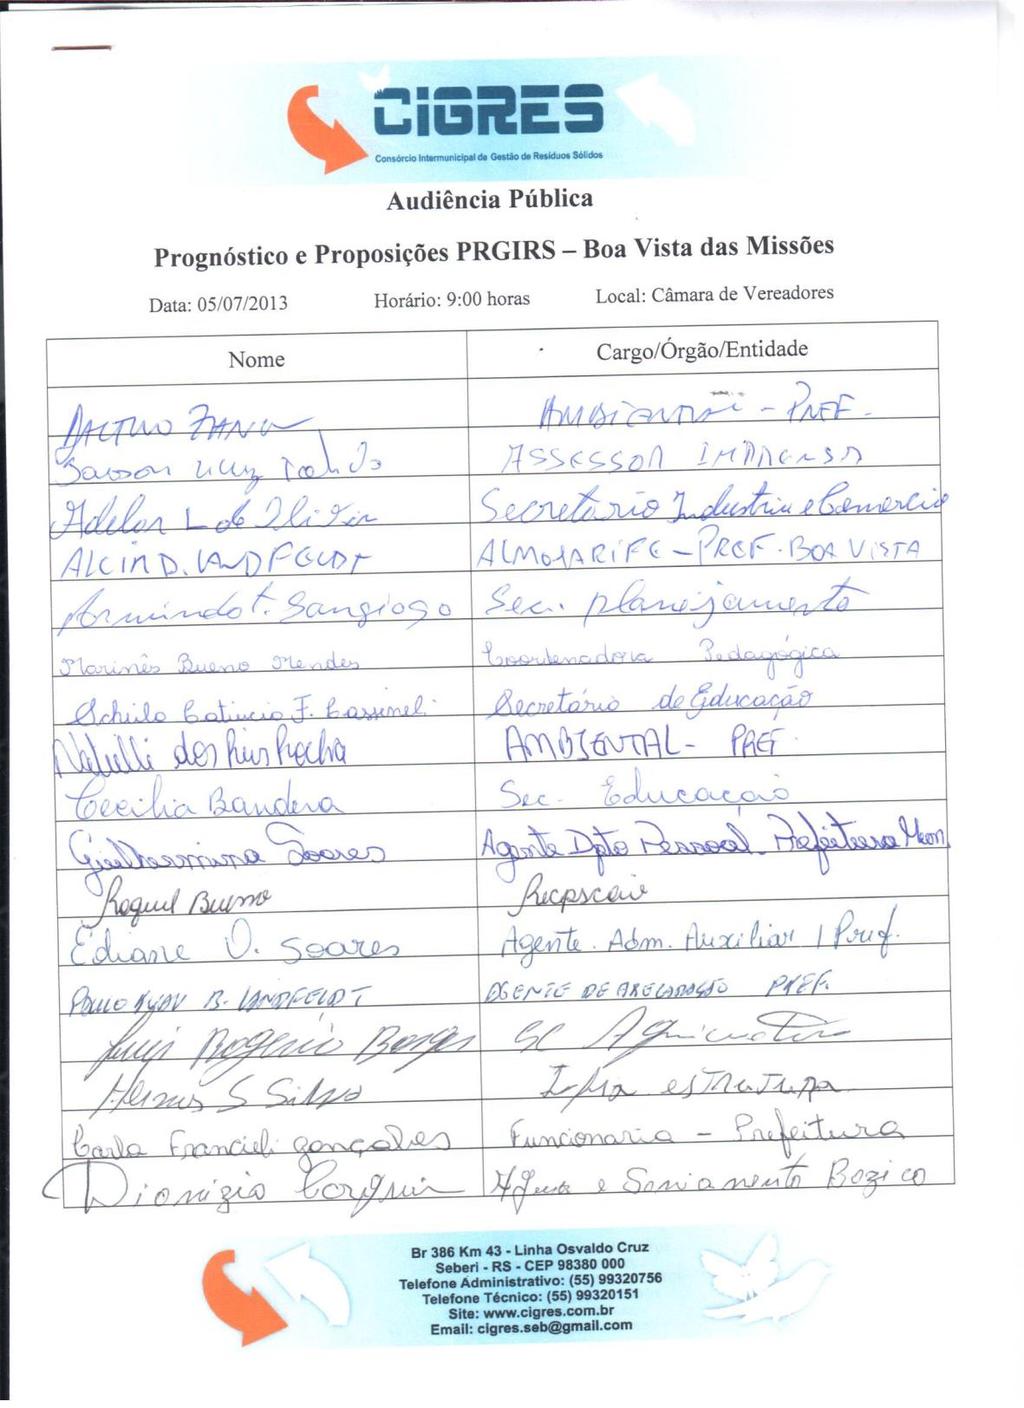 CIGRES
Consórcio Intermunicipal de Gestão de Resíduos Sólidos
Audiência Pública
Prognóstico e Proposições PRGIRS – Boa Vista das Missões
Data: 05/07/2013 Horário: 9:00 horas Local: Câmara de Vereadores
Nome Cargo/Órgão/Entidade
AMBIENTAL - PREF.
ASSESSOR IMPRENSA
Adelar L de Secretário Industria e Comercio
ALCIR D. LANDFELDT ALMOXARIFE - PREF. BOA VISTA
Armindo F. Sangiogo Sec. planejamento
Marinês Bueno Mendes Coordenadora Pedagógica
F. Secretário de Educação
dos Reis Rocha AMBIENTAL - PREF.
Cecilia Bandera Sec. Educacação
Guilhermina Soares Agente Dpto Pessoal. Prefeitura Mun
Raquel Bueno
Ediane V. Soares Agente. Adm. Auxiliar / Pref.
PAULO B. LANDFELDT AGENTE DE PREF.
Luiz Rogério Borges
S Silva Infra estrutura
Carla Francieli gonçalves Funcionaria - Prefeitura
Dionizio Agua e
Br 386 Km 43 - Linha Osvaldo Cruz
Seberi - RS - CEP 98380 000
Telefone Administrativo: (55) 99320756
Telefone Técnico: (55) 99320151
Site: www.cigres.com.br
Email: cigres.seb@gmail.com